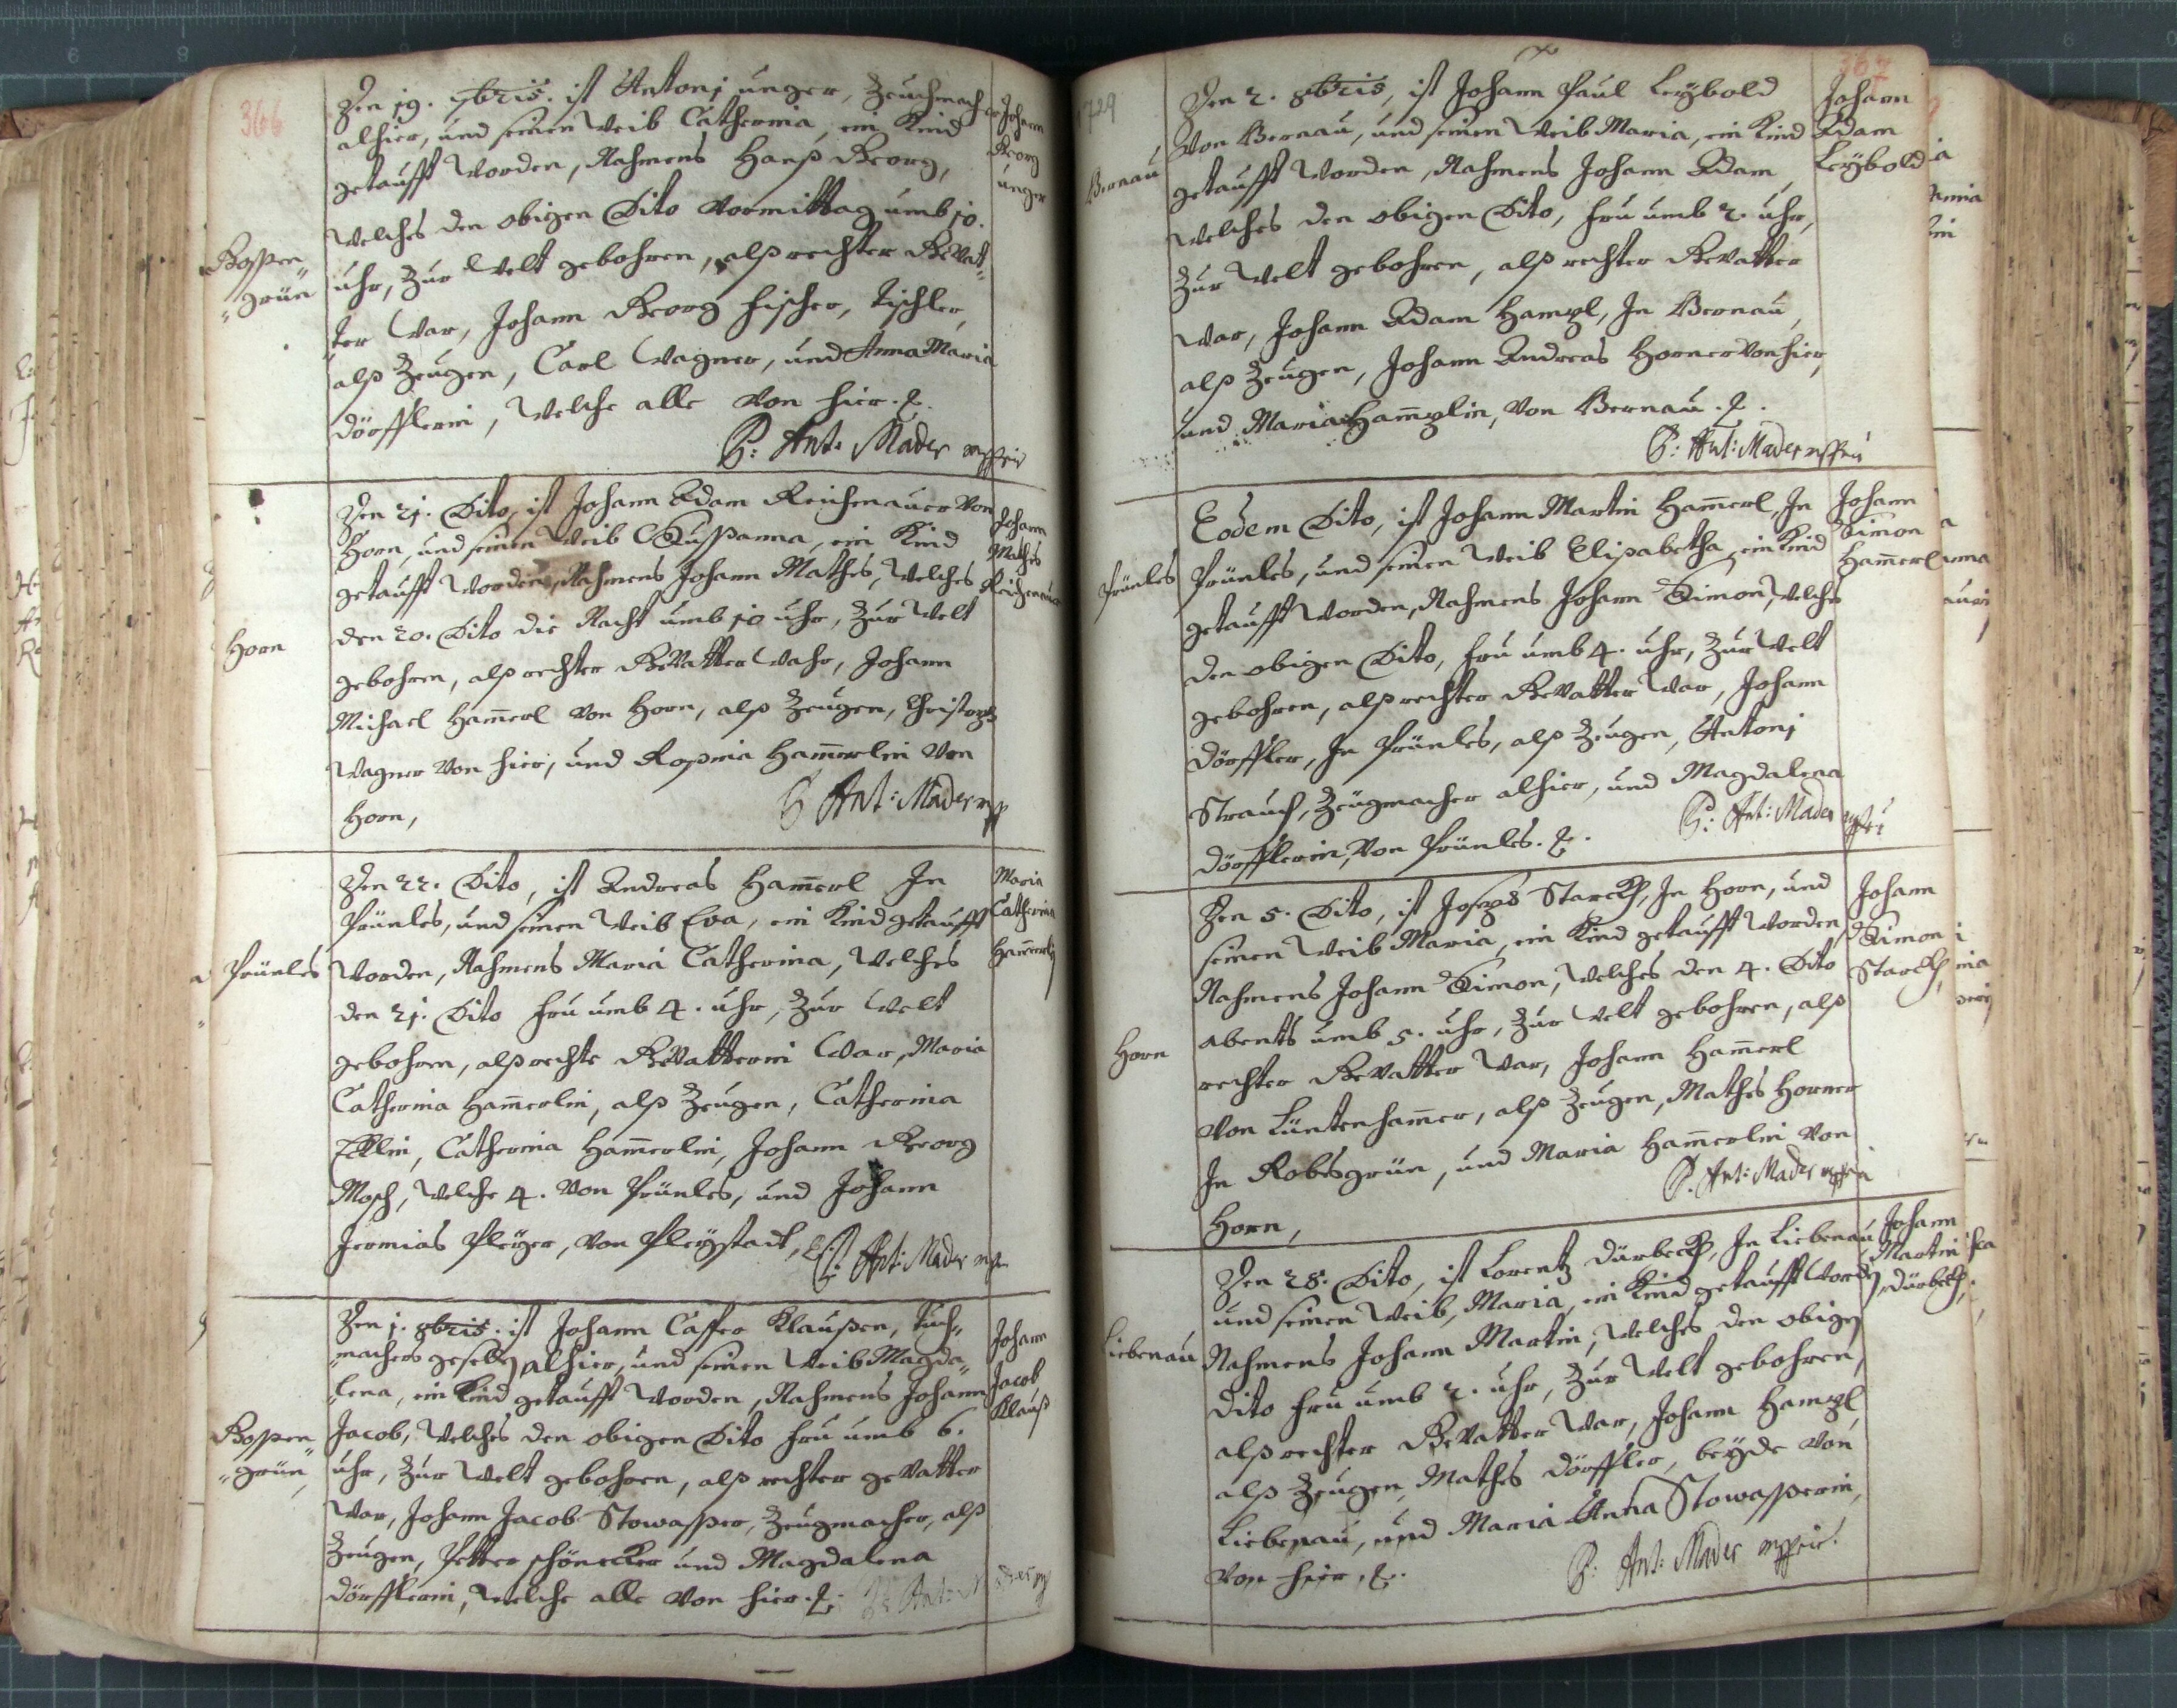 366
Den 19. 7bris. ist Antonj unger, Zeuchmacher
alhier, und seinen Weib Catherina, ein Kind
getaufft worden, Nahmens Hanß Georg,
welches den obigen Dito vormittag umb 10.
uhr, Zur Welt gebohren, alß rechter Gevat¬
ter War, Johann Georg Fischer, Tischler,
alß Zeugen, Carl Wagner, und Anna Maria
Dörfflerin, Welche alle von hier. &.
P: Ant: Mader mppria
Boßen¬
¬grün
Johann
Georg
unger
Den 21. Dito, ist Johann Adam Reichenauer von
Horn, und seinen Weib Sußanna, ein Kind
getaufft worden, Nahmens Johann Mathes, welches
den 20. Dito die Nacht umb 10 uhr, Zur Welt
gebohren, alß rechter Gevatter Wahr, Johann
Michael Ham̄erl von Horn, alß Zeugen, Christoph
Wagner von hier, und Roßina Ham̄erlin von
Horn,
P Ant: Mader mpp
Horn
Johann
Mathes
Reichenauer
Den 22. Dito, ist Andreas Ham̄erl In
Prünles, und seinen Weib Eva, ein Kind getaufft
worden, Nahmens Maria Catherina, welches
den 21. Dito fru umb 4. uhr, Zur Welt
gebohren, alß rechte Gevatterin War, Maria
Catherina Ham̄erlin, alß Zeugen, Catherina
Catherina Ham̄erlin, Johann Georg
Mosch, welche 4. von Prünles, und Johann
Jeremias Pleyer, von Pleystadt, &.
P: Ant: Mader mpp
Prünles
Maria
Catherina
Ham̄erlin
Den 1. 8bris. ist Johann Casper Klaußen, Tuch¬
¬machers gesellen alhier, und seinen Weib Magda¬
¬lena, ein Kind getaufft worden, Nahmens Johann
Jacob, welches den obigen Dito fru umb 6.
uhr, Zur Welt gebohren, alß rechter gevatter
War, Johann Jacob Stowaßer, Zeugmacher, alß
Zeugen, Petter Schönecker und Magdalena
Dörfflerin, welche alle von hier. &.
P: Ant: Mader mpp
Boßen¬
¬grün
Johann
Jacob
Klauß
367
1729
Den 2. 8bris, ist Johann Paul Leybold
von Bernau, und seinen Weib Maria, ein Kind
getaufft worden, Nahmens Johann Adam
welches den obigen Dito, fru umb 2. uhr,
Zur Welt gebohren, alß rechter Gevatter
War, Johann Adam Hampl, In Bernau,
alß Zeugen, Johann Andreas Horner von hier,
und Maria Ham̄plin, von Bernau. &.
P: Ant: Mader mppria
Bernau
Johann
Adam
Leybold
Eodem Dito, ist Johann Martin Ham̄erl, In
Prünles, und seinen Weib Elisabetha, ein Kind
getaufft worden, Nahmens Johann Simon, welches
den obigen Dito, fru umb 4. uhr, Zur Welt
gebohren, alß rechter Gevatter War, Johann
Dörffler, In Prünles, alß Zeugen, Antonj
Strauch, Zeugmacher alhier, und Magdalena
Dörfflerin, von Prünles. &.
P: Ant: Mader mppria
Prünles
Johann
Simon
Ham̄erl
Den 5. Dito, ist Joseph Starckh, In Horn, und
seinen Weib Maria, ein Kind getaufft worden,
Nahmens Johann Simon, welches den 4. Dito
abents umb 5. uhr, Zur Welt gebohren, alß
rechter Gevatter War, Johann Ham̄erl
von Lüntenham̄er, alß Zeugen, Mathes Horner
In Robesgrün, und Maria Ham̄erlin von
Horn,
P. Ant: Mader mppria
Horn
Johann
Simon
Starckh,
Den 28. Dito, ist Lorentz Dürbeckh, In Liebenau
und seinen Weib, Maria, ein Kind getaufft worden,
Nahmens Johann Martin, welches den obigen
Dito fru umb 2. uhr, Zur Welt gebohren,
alß rechter Gevatter War, Johann Hampl,
alß Zeugen, Mathes Dörffler, beyde von
Liebenau, und Maria Anna Stowaßerin,
von hier, &.
P: Ant: Mader mppria.
Liebenau
Johann
Martin
Dürbeckh,